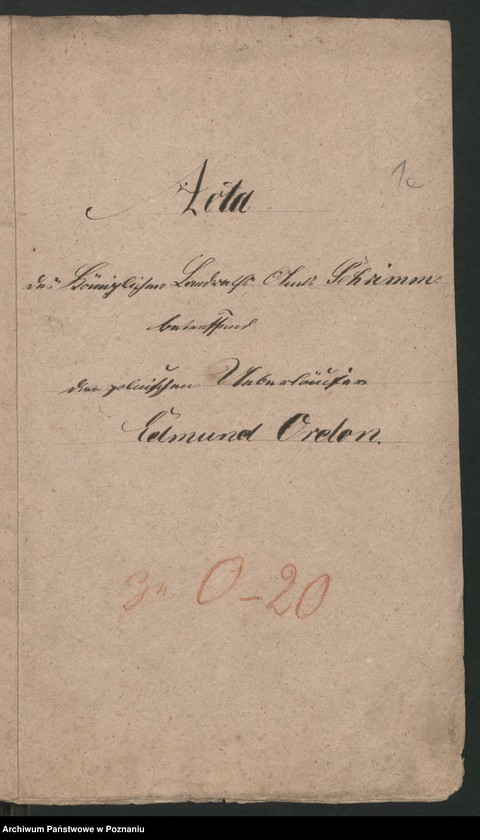 1c
Acta
des Königlichen Landraths Amts Schrimm
betreffend
den polnischen Ueberläufer
Edmund Ordon.
O-20
Archiwum Państwowe w Poznaniu